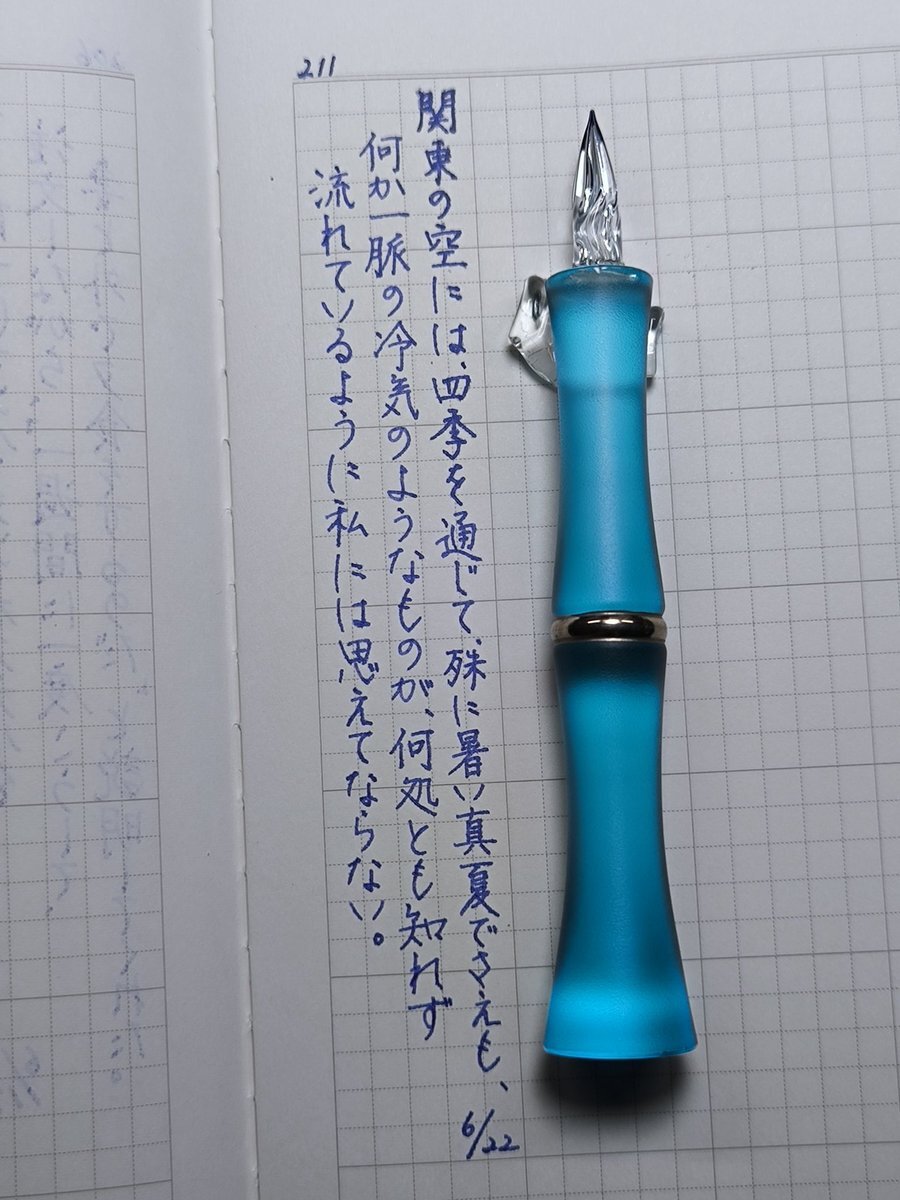 211
関東の空には、四季を通じて、殊に暑い真夏でさえも、
何か一脈の冷気のようなものが、何処とも知れず
流れているように私には思えてならない。
6/22